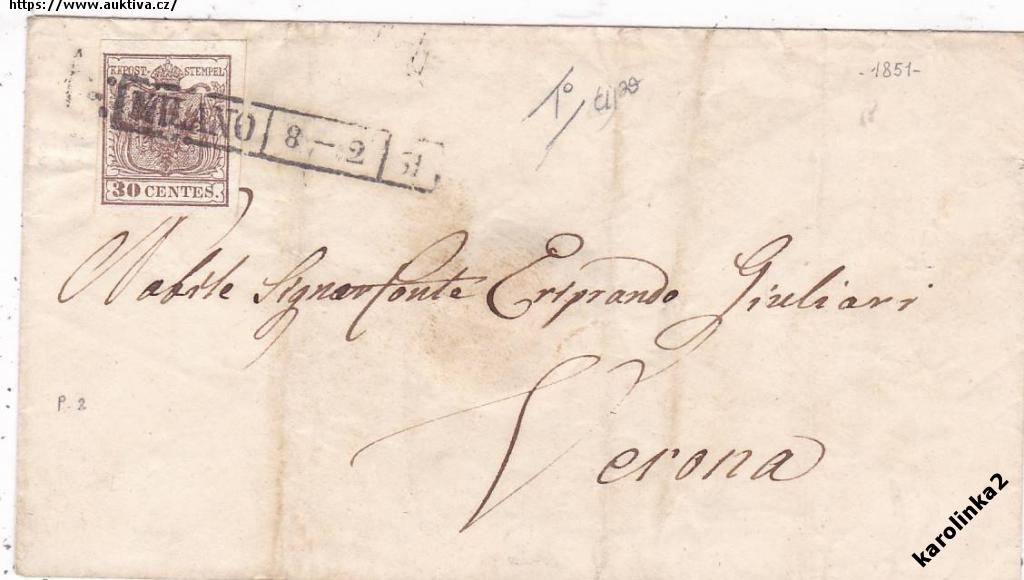 https://www.auktiva.cz/
-1851-
K.K.POST-STEMPEL
MILANO 8-2 51
30 CENTES.
Nobile Signor Conte Eriprando Giuliari
Verona
P. 2
karolinka2